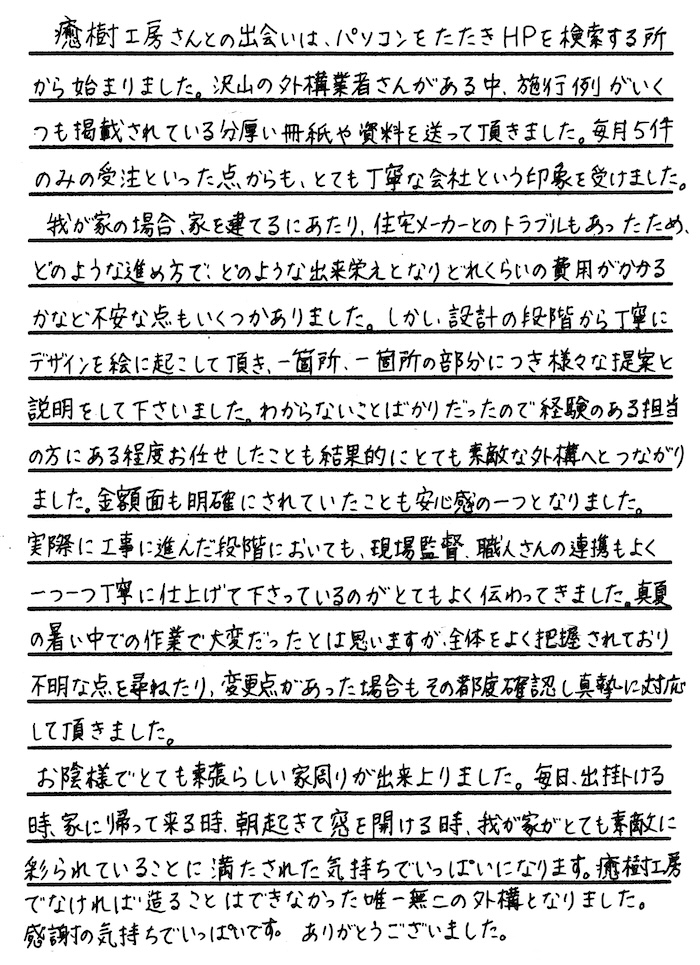 癒樹工房さんとの出会いは、パソコンをたたきHPを検索する所
から始まりました。沢山の外構業者さんがある中、施行例がいく
つも掲載されている分厚い冊紙や資料を送って頂きました。毎月5件
のみの受注といった点からも、とても丁寧な会社という印象を受けました。
我が家の場合、家を建てるにあたり、住宅メーカーとのトラブルもあったため、
どのような進め方で、どのような出来栄えとなりどれくらいの費用がかかる
かなど不安な点もいくつかありました。しかし、設計の段階から丁寧に
デザインを絵に起こして頂き、一箇所、一箇所の部分につき様々な提案と
説明をして下さいました。わからないことばかりだったので経験のある担当
の方にある程度お任せしたことも結果的にとても素敵な外構へとつながり
ました。金額面も明確にされていたことも安心感の一つとなりました。
実際に工事に進んだ段階においても、現場監督、職人さんの連携もよく
一つ一つ丁寧に仕上げて下さっているのがとてもよく伝わってきました。真夏
の暑い中での作業で大変だったとは思いますが、全体をよく把握されており
不明な点を尋ねたり、変更点があった場合もその都度確認し真摯に対応
して頂きました。
お陰様でとても素張らしい家周りが出来上りました。毎日、出掛ける
時、家に帰って来る時、朝起きて窓を開ける時、我が家がとても素敵に
彩られていることに満たされた気持ちでいっぱいになります。癒樹工房
でなければ造ることはできなかった唯一無二の外構となりました。
感謝の気持ちでいっぱいです。ありがとうございました。